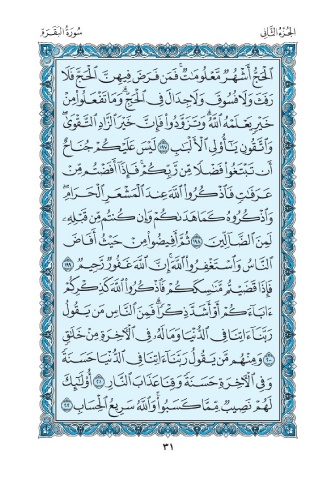 الجُزْءُ الثَّانِي سُورَةُ البَقَرَةِ
ٱلْحَجُّ أَشْهُرٌ مَّعْلُومَٰتٌ ۚ فَمَن فَرَضَ فِيهِنَّ ٱلْحَجَّ فَلَا
رَفَثَ وَلَا فُسُوقَ وَلَا جِدَالَ فِى ٱلْحَجِّ ۗ وَمَا تَفْعَلُوا۟ مِنْ
خَيْرٍ يَعْلَمْهُ ٱللَّهُ ۗ وَتَزَوَّدُوا۟ فَإِنَّ خَيْرَ ٱلزَّادِ ٱلتَّقْوَىٰ ۚ
وَٱتَّقُونِ يَٰٓأُو۟لِى ٱلْأَلْبَٰبِ ١٩٧ لَيْسَ عَلَيْكُمْ جُنَاحٌ
أَن تَبْتَغُوا۟ فَضْلًا مِّن رَّبِّكُمْ ۚ فَإِذَآ أَفَضْتُم مِّنْ
عَرَفَٰتٍ فَٱذْكُرُوا۟ ٱللَّهَ عِندَ ٱلْمَشْعَرِ ٱلْحَرَامِ ۖ
وَٱذْكُرُوهُ كَمَا هَدَىٰكُمْ وَإِن كُنتُم مِّن قَبْلِهِۦ
لَمِنَ ٱلضَّآلِّينَ ١٩٨ ثُمَّ أَفِيضُوا۟ مِنْ حَيْثُ أَفَاضَ
ٱلنَّاسُ وَٱسْتَغْفِرُوا۟ ٱللَّهَ ۚ إِنَّ ٱللَّهَ غَفُورٌ رَّحِيمٌ ١٩٩
فَإِذَا قَضَيْتُم مَّنَٰسِكَكُمْ فَٱذْكُرُوا۟ ٱللَّهَ كَذِكْرِكُمْ
ءَابَآءَكُمْ أَوْ أَشَدَّ ذِكْرًا ۗ فَمِنَ ٱلنَّاسِ مَن يَقُولُ
رَبَّنَآ ءَاتِنَا فِى ٱلدُّنْيَا وَمَا لَهُۥ فِى ٱلْءَاخِرَةِ مِنْ خَلَٰقٍ
٢٠٠ وَمِنْهُم مَّن يَقُولُ رَبَّنَآ ءَاتِنَا فِى ٱلدُّنْيَا حَسَنَةً
وَفِى ٱلْءَاخِرَةِ حَسَنَةً وَقِنَا عَذَابَ ٱلنَّارِ ٢٠١ أُو۟لَٰٓئِكَ
لَهُمْ نَصِيبٌ مِّمَّا كَسَبُوا۟ ۚ وَٱللَّهُ سَرِيعُ ٱلْحِسَابِ ٢٠٢
٣١